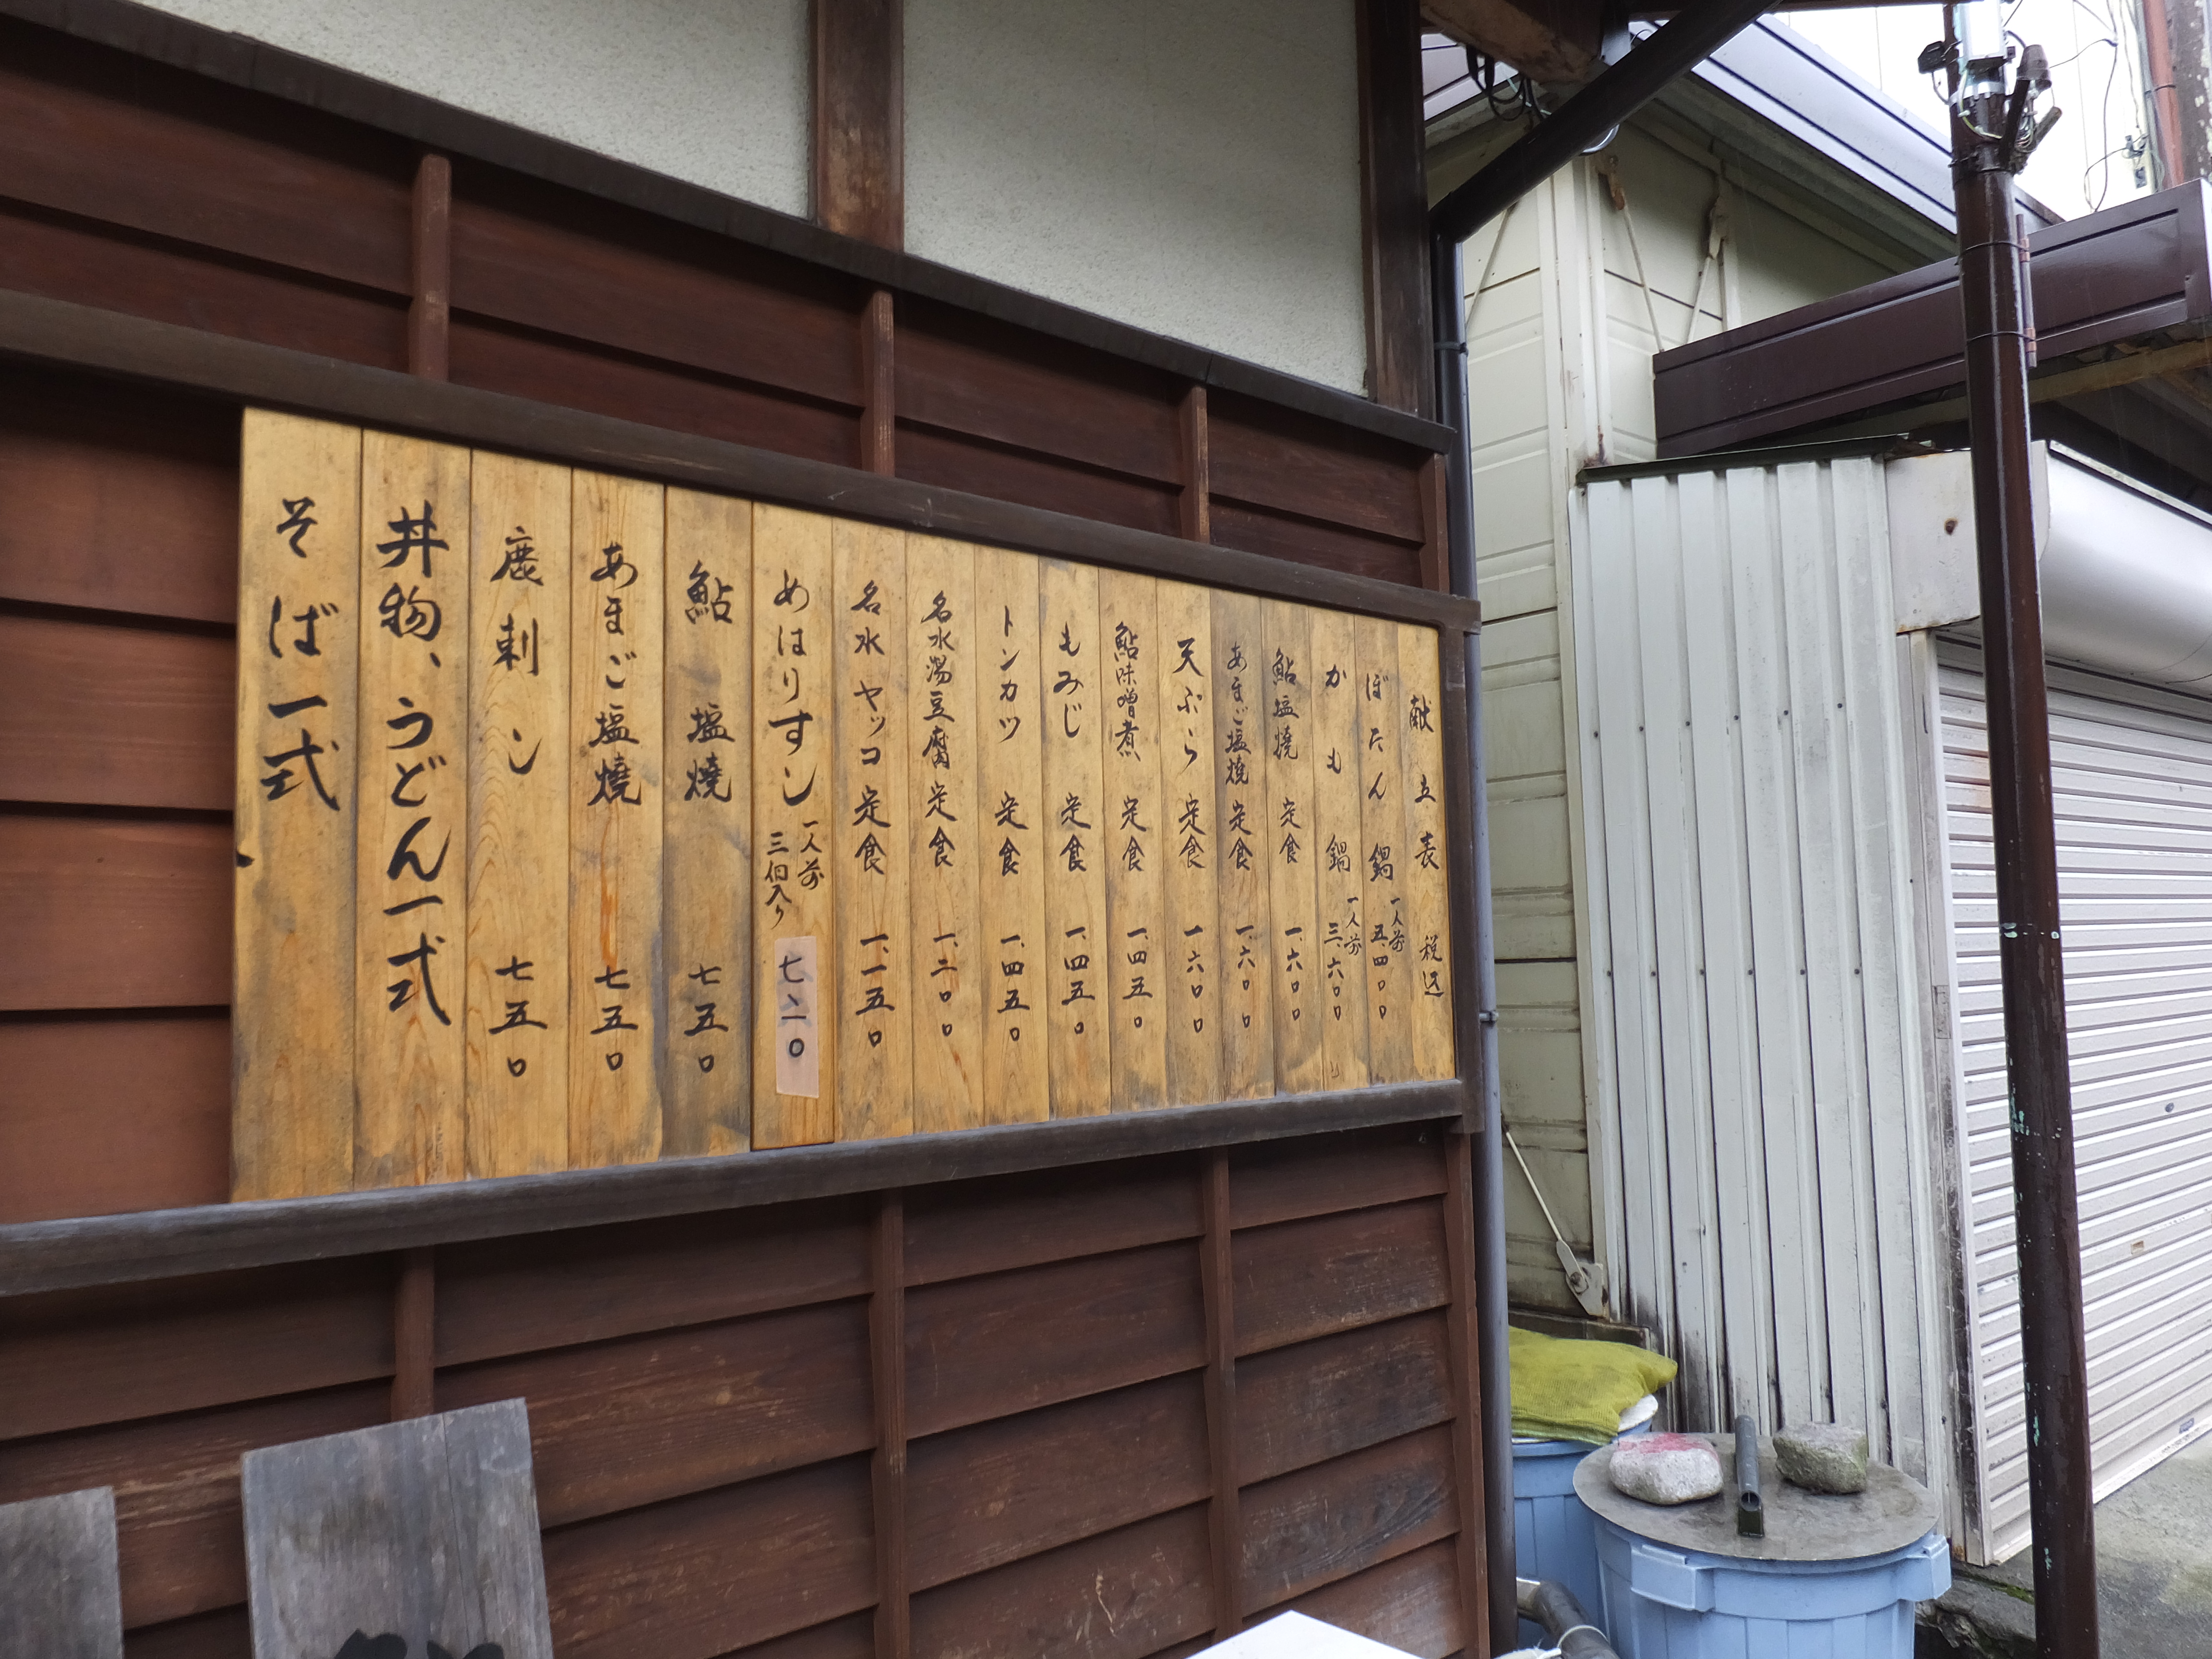 献立表 税込
ぼたん鍋 一人前 五、四〇〇
かも鍋 一人前 三、六〇〇
鮎塩焼定食 一、六〇〇
あまご塩焼定食 一、六〇〇
天ぷら定食 一、六〇〇
鮎味噌煮定食 一、四五〇
もみじ定食 一、四五〇
トンカツ定食 一、四五〇
名水湯豆腐定食 一、二〇〇
名水ヤッコ定食 一、一五〇
めはりすし 一人前 三個入り 七二〇
鮎塩焼 七五〇
あまご塩焼 七五〇
鹿刺し 七五〇
丼物、うどん一式
そば一式